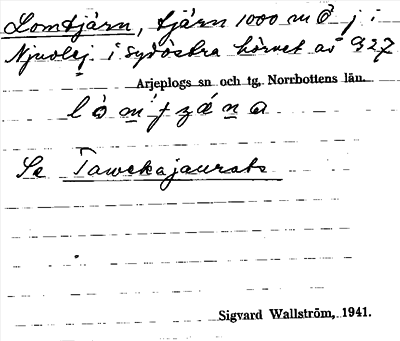 Lomtjärn, tjärn 1000 m Ö j i
Njuolej. i sydöstra hörnet av 927
Arjeplogs sn och tg. Norrbottens län.
Se Tawekajaurats
Sigvard Wallström, 1941.